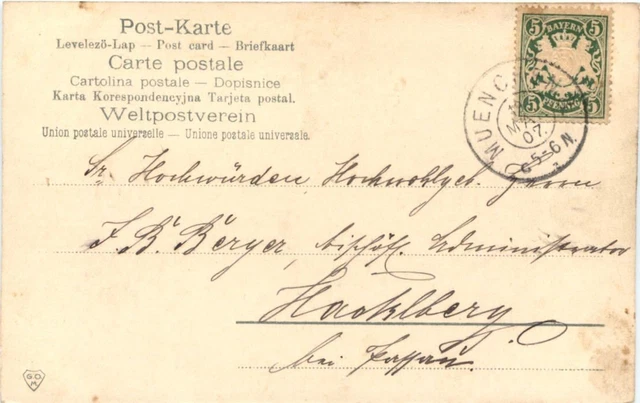 Post-Karte
Levelezö-Lap — Post card — Briefkaart
Carte postale
Cartolina postale — Dopisnice
Karta Korespondencyjna Tarjeta postal.
Weltpostverein
Union postale universelle — Unione postale universale.
5 BAYERN 5
5 PFENNIG 5
MUENC
MAI
07.
5-6 N.
Sr. Hochwürden, Hochwohlgeb. Herrn
J. B. Berger, bischöfl. Administrator
Hacklberg
bei Passau.
G.O.
M